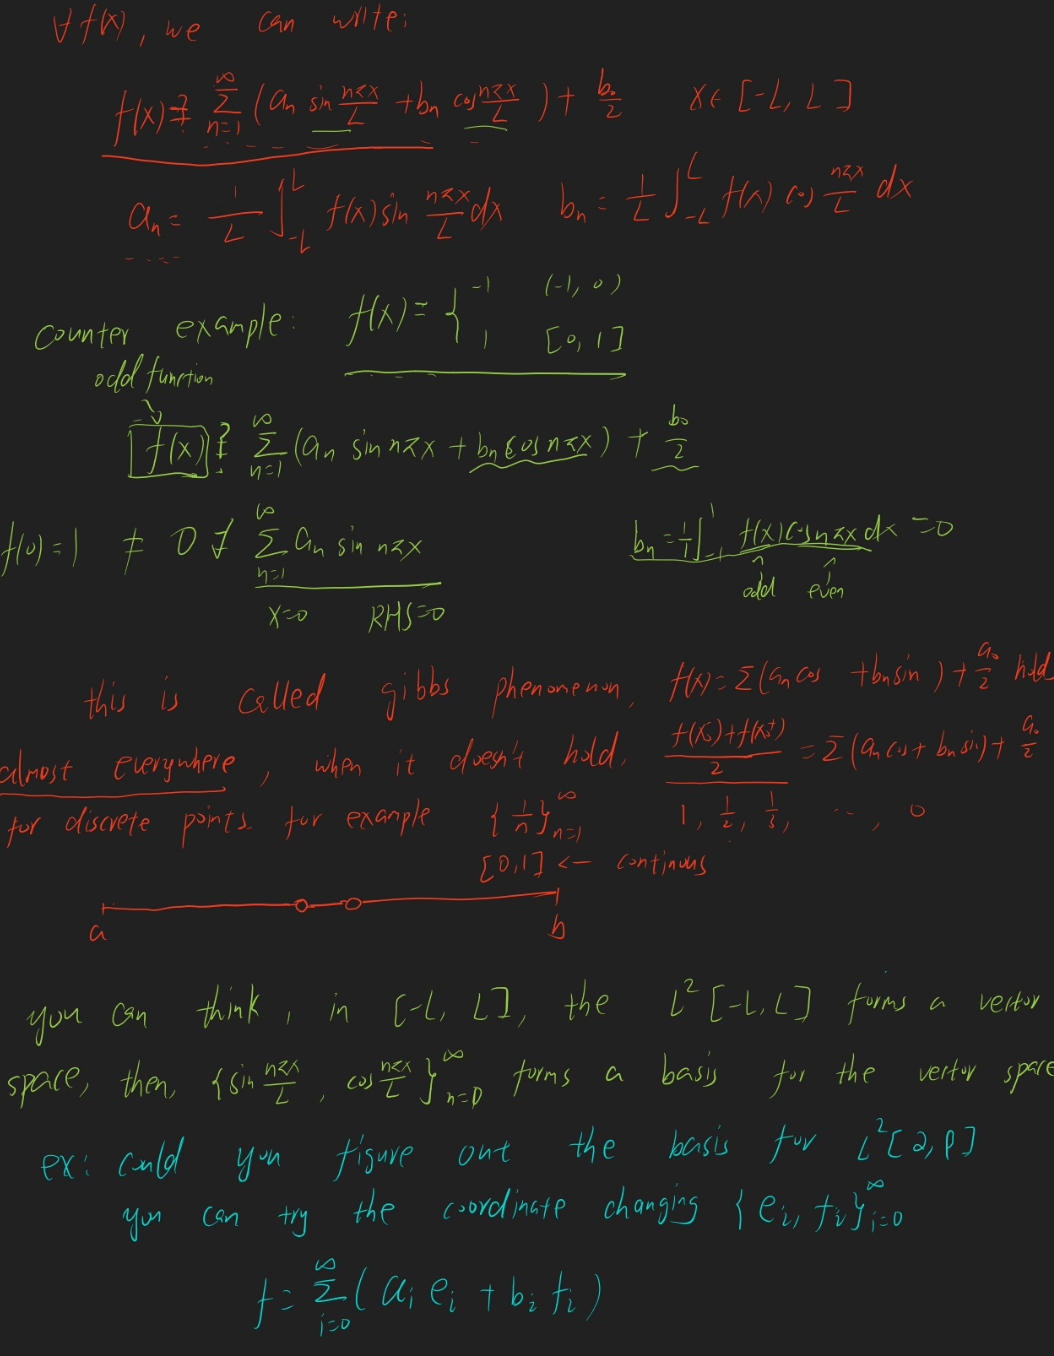 ∀ f(x), we can write:
f(x) ≠ ∑_{n=1}^{∞} (a_n sin nπx/L + b_n cos nπx/L) + b_0/2 x ∈ [-L, L]
a_n = 1/L ∫_{-L}^{L} f(x) sin nπx/L dx b_n = 1/L ∫_{-L}^{L} f(x) cos nπx/L dx
counter example: f(x) = { -1 (-1, 0)
1 [0, 1]
odd function
f(x) ∑_{n=1}^{∞} (a_n sin nπx + b_n cos nπx) + b_0/2
f(0) = 1 ≠ 0 ∑_{n=1}^{∞} a_n sin nπx b_n = 1/1 ∫_{-1}^{1} f(x) cos nπx dx = 0
odd even
x=0 RHS=0
this is called gibbs phenomenon, f(x) = Σ(a_n cos + b_n sin) + a_0/2 hold
almost everywhere, when it doesn't hold, f(x⁻)+f(x⁺)/2 = Σ(a_n cos + b_n sin) + a_0/2
for discrete points. for example {1/n}_{n=1}^{∞} 1, 1/2, 1/3, ..., 0
[0,1] <- continuous
a b
you can think, in [-L, L], the L²[-L, L] forms a vector
space, then, {sin nπx/L, cos nπx/L}_{n=0}^{∞} forms a basis for the vector space
ex: could you figure out the basis for L²[α, β]
you can try the coordinate changing {e_i, f_i}_{i=0}^{∞}
f = ∑_{i=0}^{∞} (a_i e_i + b_i f_i)